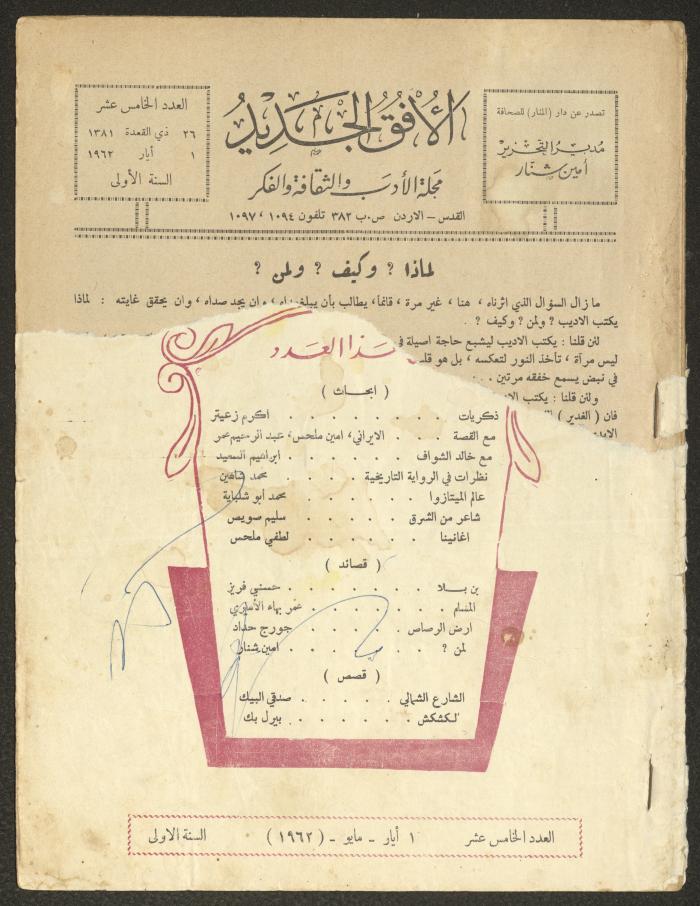 تصدر عن دار (المنار) للصحافة
مدير التحرير
أمين شنار
الأفق الجديد
مجلة الأدب والثقافة والفكر
القدس - الاردن ص.ب ٣٨٢ تلفون ١٠٩٤ ، ١٠٩٧
العدد الخامس عشر
٢٦ ذي القعدة ١٣٨١
١ أيار ١٩٦٢
السنة الأولى
لماذا ؟ وكيف ؟ ولمن ؟
ما زال السؤال الذي اثرناه ، هنا ، غير مرة ، قائما ، يطالب بأن يبلغ مداه ، وان يجد صداه ، وان يحقق غايته : لماذا
يكتب الاديب ؟ ولمن ؟ وكيف ؟ .
لئن قلنا : يكتب الاديب ليشبع حاجة اصيلة
ليس مرآة ، تأخذ النور لتعكسه ، بل هو
في نبض يسمع خفقه مرتين . . .
ولئن قلنا : يكتب
فان ( الغدير )
هذا العدد
( ابحاث )
ذكريات . . . . . . . . اكرم زعيتر
مع القصة . . . الايراني، امين ملحس، عبد الرحيم عمر
مع خالد الشواف . . . . . . ابراهيم السعيد
نظرات في الرواية التاريخية . . . . محمد شاهين
عالم الميتازوا . . . . . . محمد ابو شلباية
شاعر من الشرق . . . . . سليم صويص
اغانينا . . . . . . لطفي ملحس
( قصائد )
بن بـــلا . . . . . . . حسني فريز
المسلم . . . . . . . عمر بهاء الأميري
ارض الرصاص . . . . . جورج حداد
لمن ؟ . . . . . . امين شنار
( قصص )
الشارع الشمالي . . . . . صدقي البيك
لكشكش . . . . . . بيرل بك
العدد الخامس عشر ١ أيار - مايو - ( ١٩٦٢ ) السنة الاولى